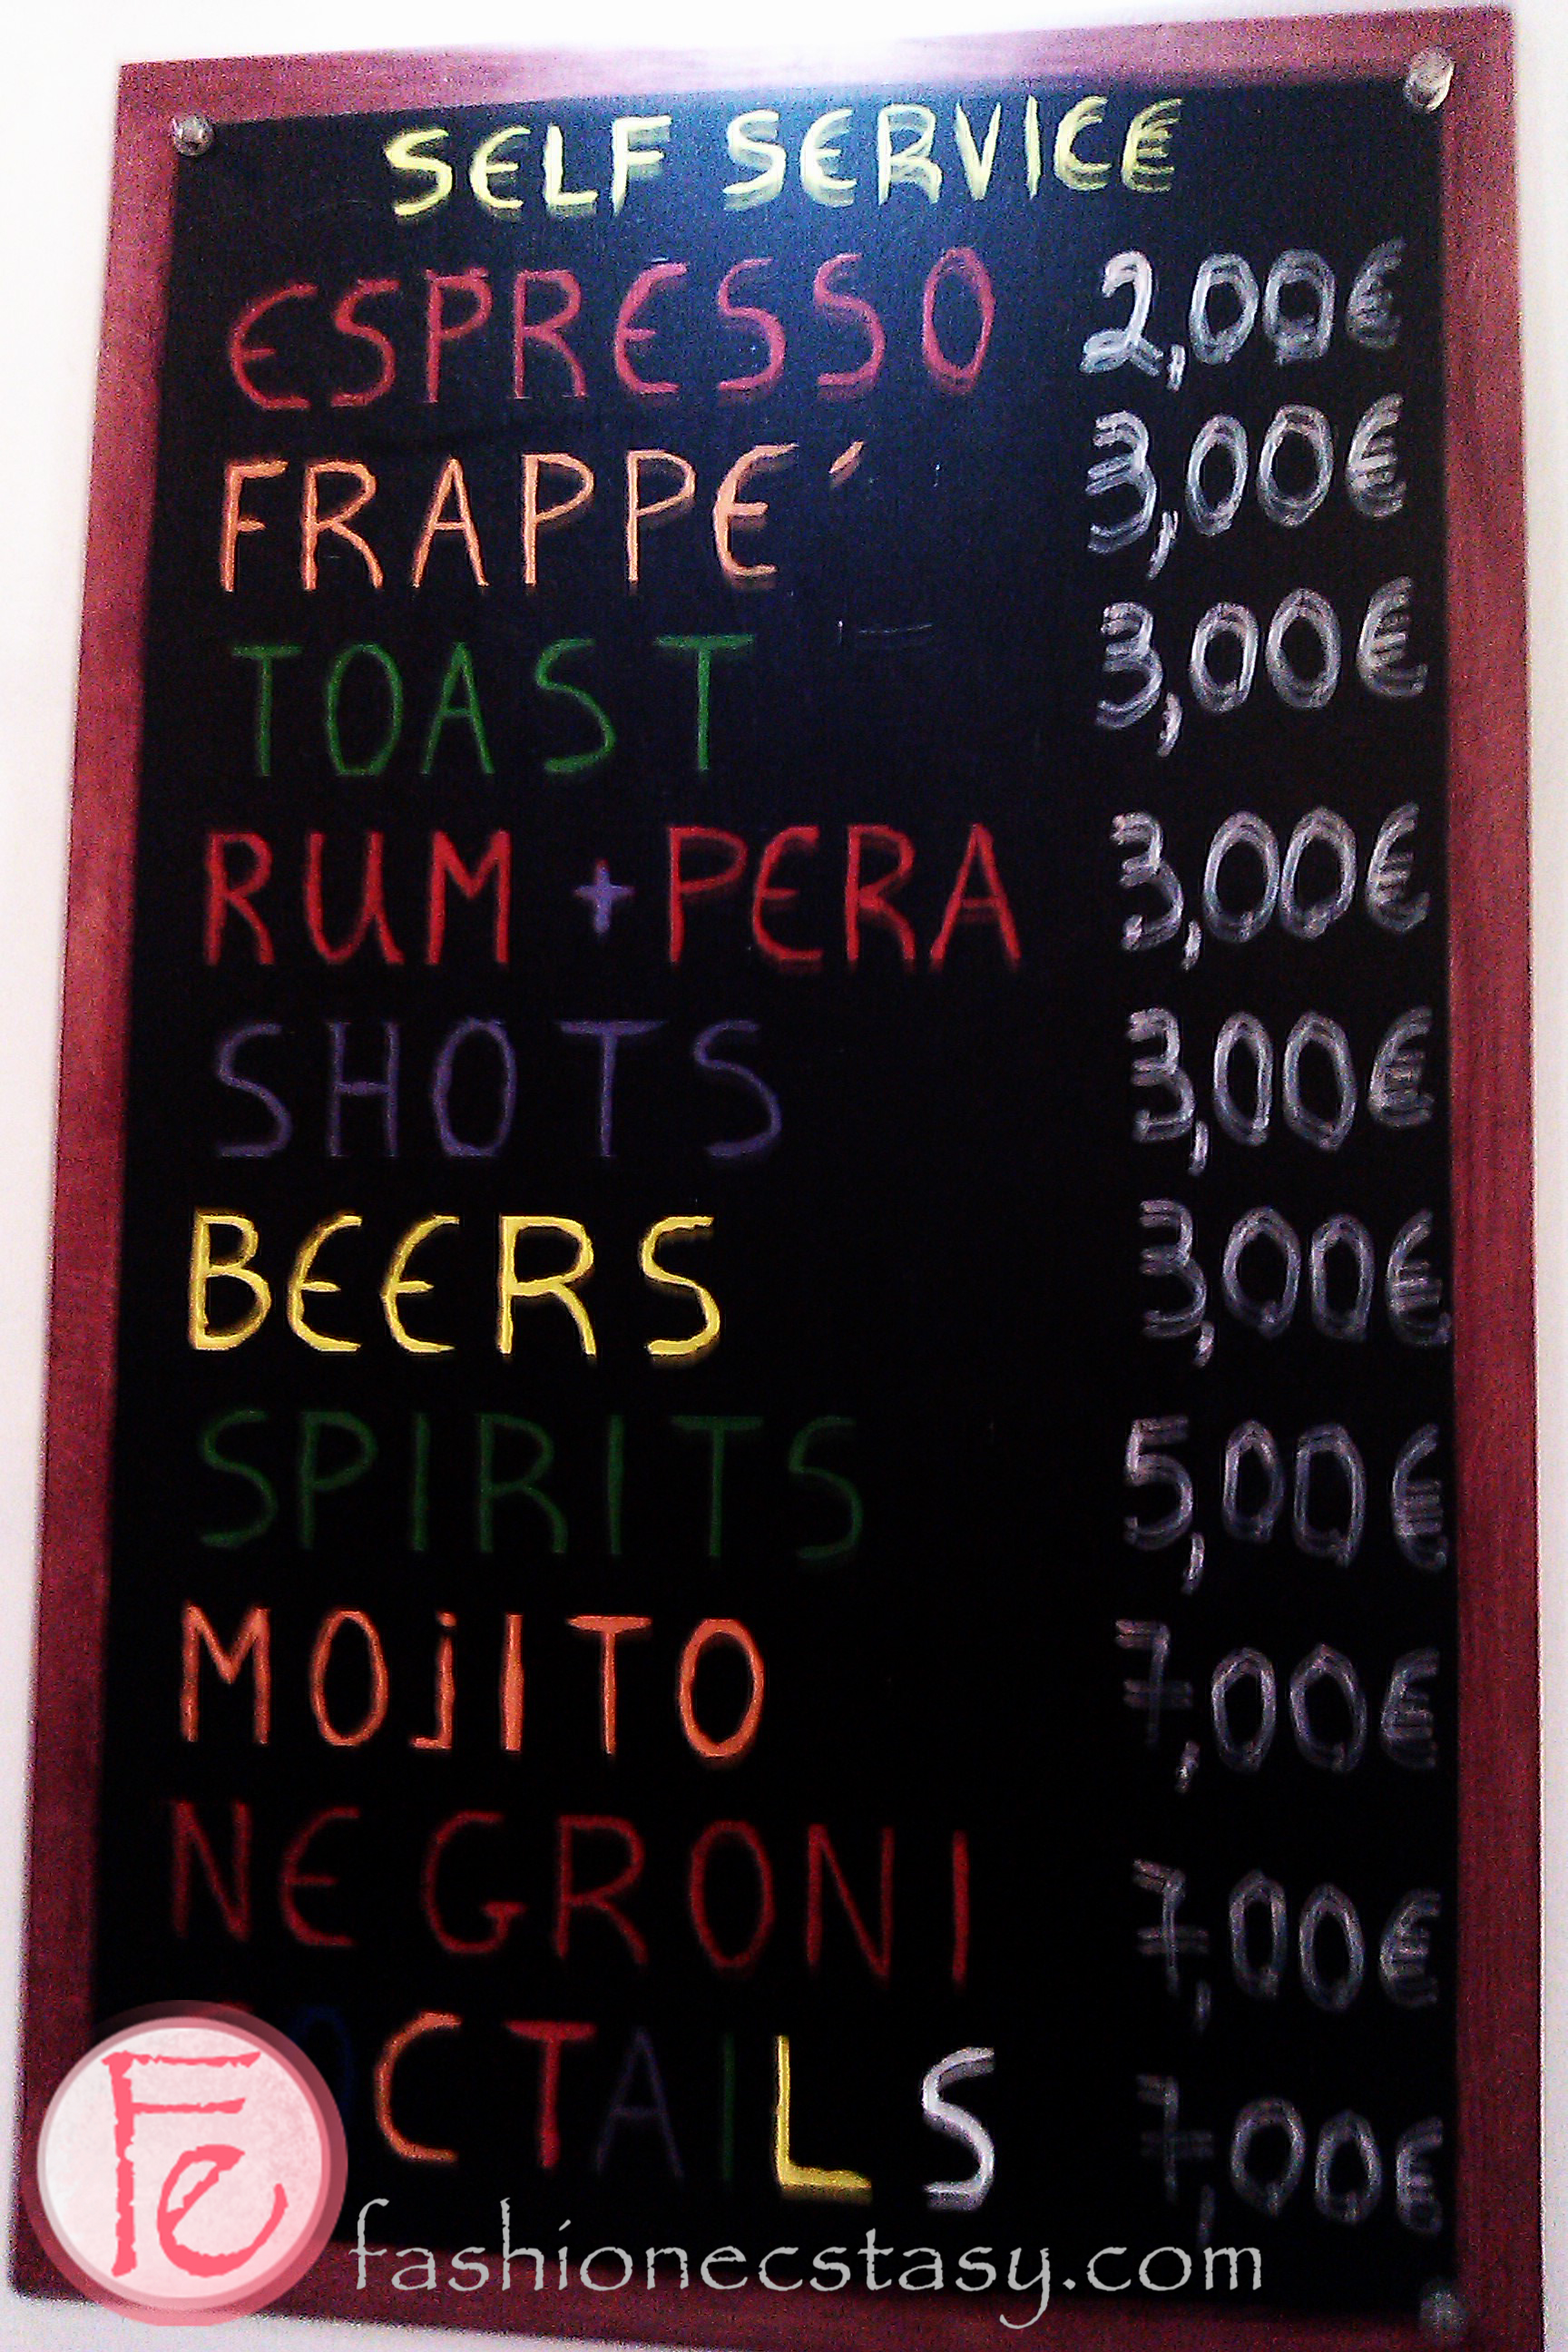 SELF SERVICE
ESPRESSO 2,00€
FRAPPE' 3,00€
TOAST 3,00€
RUM + PERA 3,00€
SHOTS 3,00€
BEERS 3,00€
SPIRITS 5,00€
MOJITO 7,00€
NEGRONI 7,00€
OCTAILS 7,00€
Fe
fashionecstasy.com